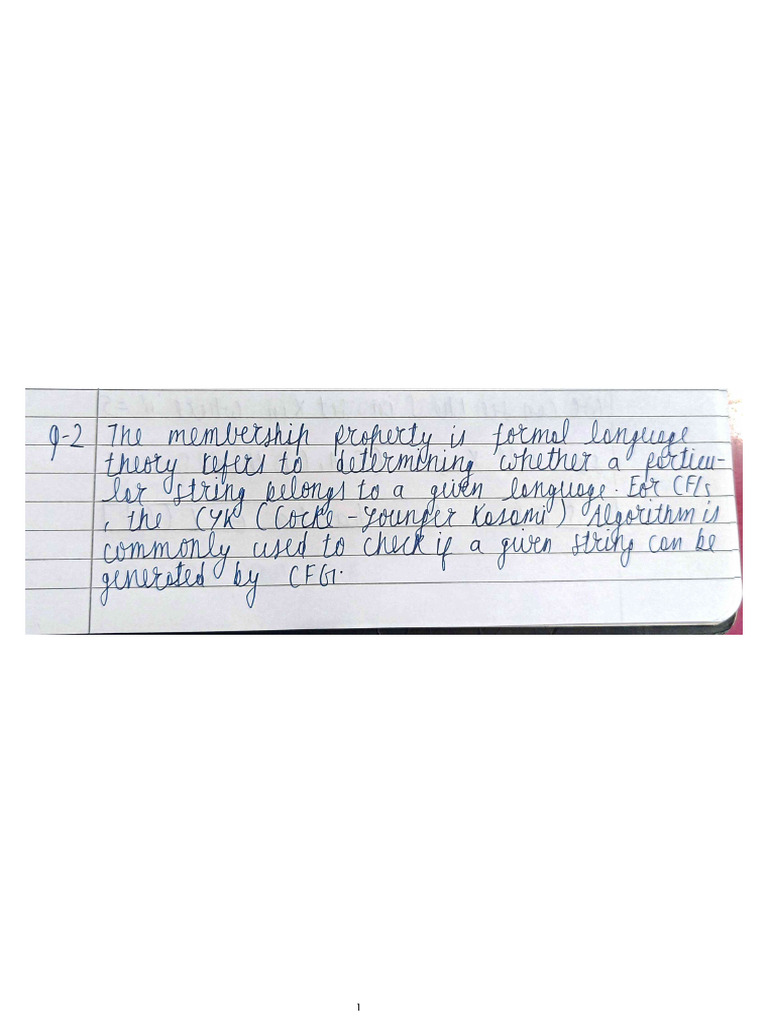 Q-2 The membership property is formal language
theory refers to determining whether a particu-
lar string belongs to a given language. For CFLs
, the CYK (Cocke - Younger Kasami) Algorithm is
commonly used to check if a given string can be
generated by CFG.
1